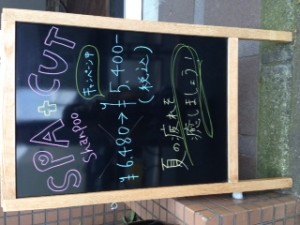 SPA+CUT
shampoo
キャンペーン中
¥6,480→¥5,400-
(税込)
夏の疲れを
癒しましょう!